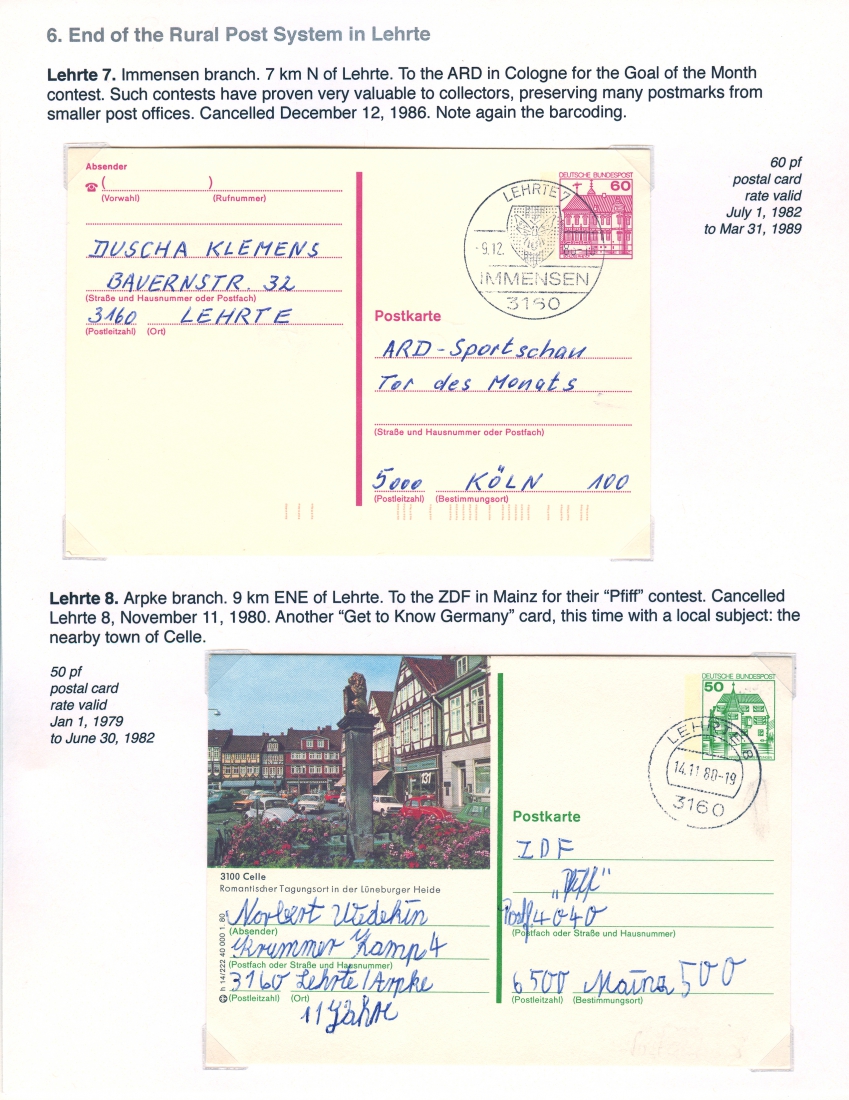 6. End of the Rural Post System in Lehrte
Lehrte 7. Immensen branch. 7 km N of Lehrte. To the ARD in Cologne for the Goal of the Month
contest. Such contests have proven very valuable to collectors, preserving many postmarks from
smaller post offices. Cancelled December 12, 1986. Note again the barcoding.
60 pf
postal card
rate valid
July 1, 1982
to Mar 31, 1989
Absender
☎ ( )
(Vorwahl) (Rufnummer)
DUSCHA KLEMENS
BAUERNSTR. 32
(Straße und Hausnummer oder Postfach)
3160 LEHRTE
(Postleitzahl) (Ort)
DEUTSCHE BUNDESPOST
60
LEHRTE 7
-9.12.
IMMENSEN
3160
Postkarte
ARD-Sportschau
Tor des Monats
(Straße und Hausnummer oder Postfach)
5000 KÖLN 100
(Postleitzahl) (Bestimmungsort)
Lehrte 8. Arpke branch. 9 km ENE of Lehrte. To the ZDF in Mainz for their “Pfiff” contest. Cancelled
Lehrte 8, November 11, 1980. Another “Get to Know Germany” card, this time with a local subject: the
nearby town of Celle.
50 pf
postal card
rate valid
Jan 1, 1979
to June 30, 1982
131
3100 Celle
Romantischer Tagungsort in der Lüneburger Heide
Norbert Wedekin
(Absender)
Krummer Kamp 4
(Postfach oder Straße und Hausnummer)
3160 Lehrte/Arpke
(Postleitzahl) (Ort)
11 Jahre
h 14/222 40 000 1.80
DEUTSCHE BUNDESPOST
50
LEHRTE 8
14.11.80-19
3160
Postkarte
ZDF
„Pfiff“
Postf. 4040
(Postfach oder Straße und Hausnummer)
6500 Mainz 500
(Postleitzahl) (Bestimmungsort)